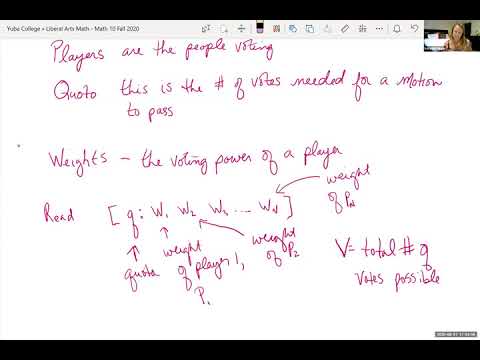 Yuba College » Liberal Arts Math - Math 10 Fall 2020
Players are the people voting
Quoto this is the # of votes needed for a motion
to pass
Weights - the voting power of a player
weight
of PN
Read [q: W1 W2 W3 ... WN]
quota
weight
of player 1,
P1
weight
of P2
V = total # of
votes possible